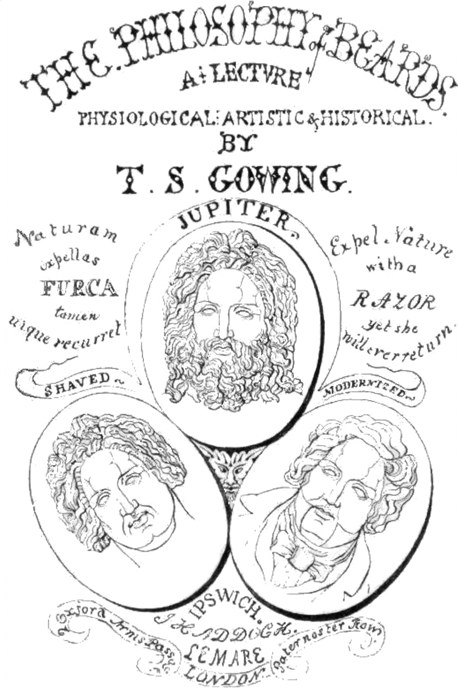 THE PHILOSOPHY of BEARDS.
A LECTVRE
PHYSIOLOGICAL: ARTISTIC & HISTORICAL.
BY
T. S. GOWING.
JUPITER.
Naturam
expellas
FURCA
tamen
usque recurret
Expel Nature
with a
RAZOR
yet she
will ever return.
SHAVED
MODERNIZED
IPSWICH.
J HADDOCK.
LEMARE
LONDON
Oxford Arms Passge
Paternoster Row